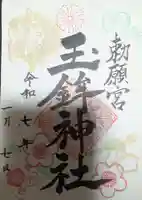 勅願宮
玉鉾神社
令和七年
一月七日